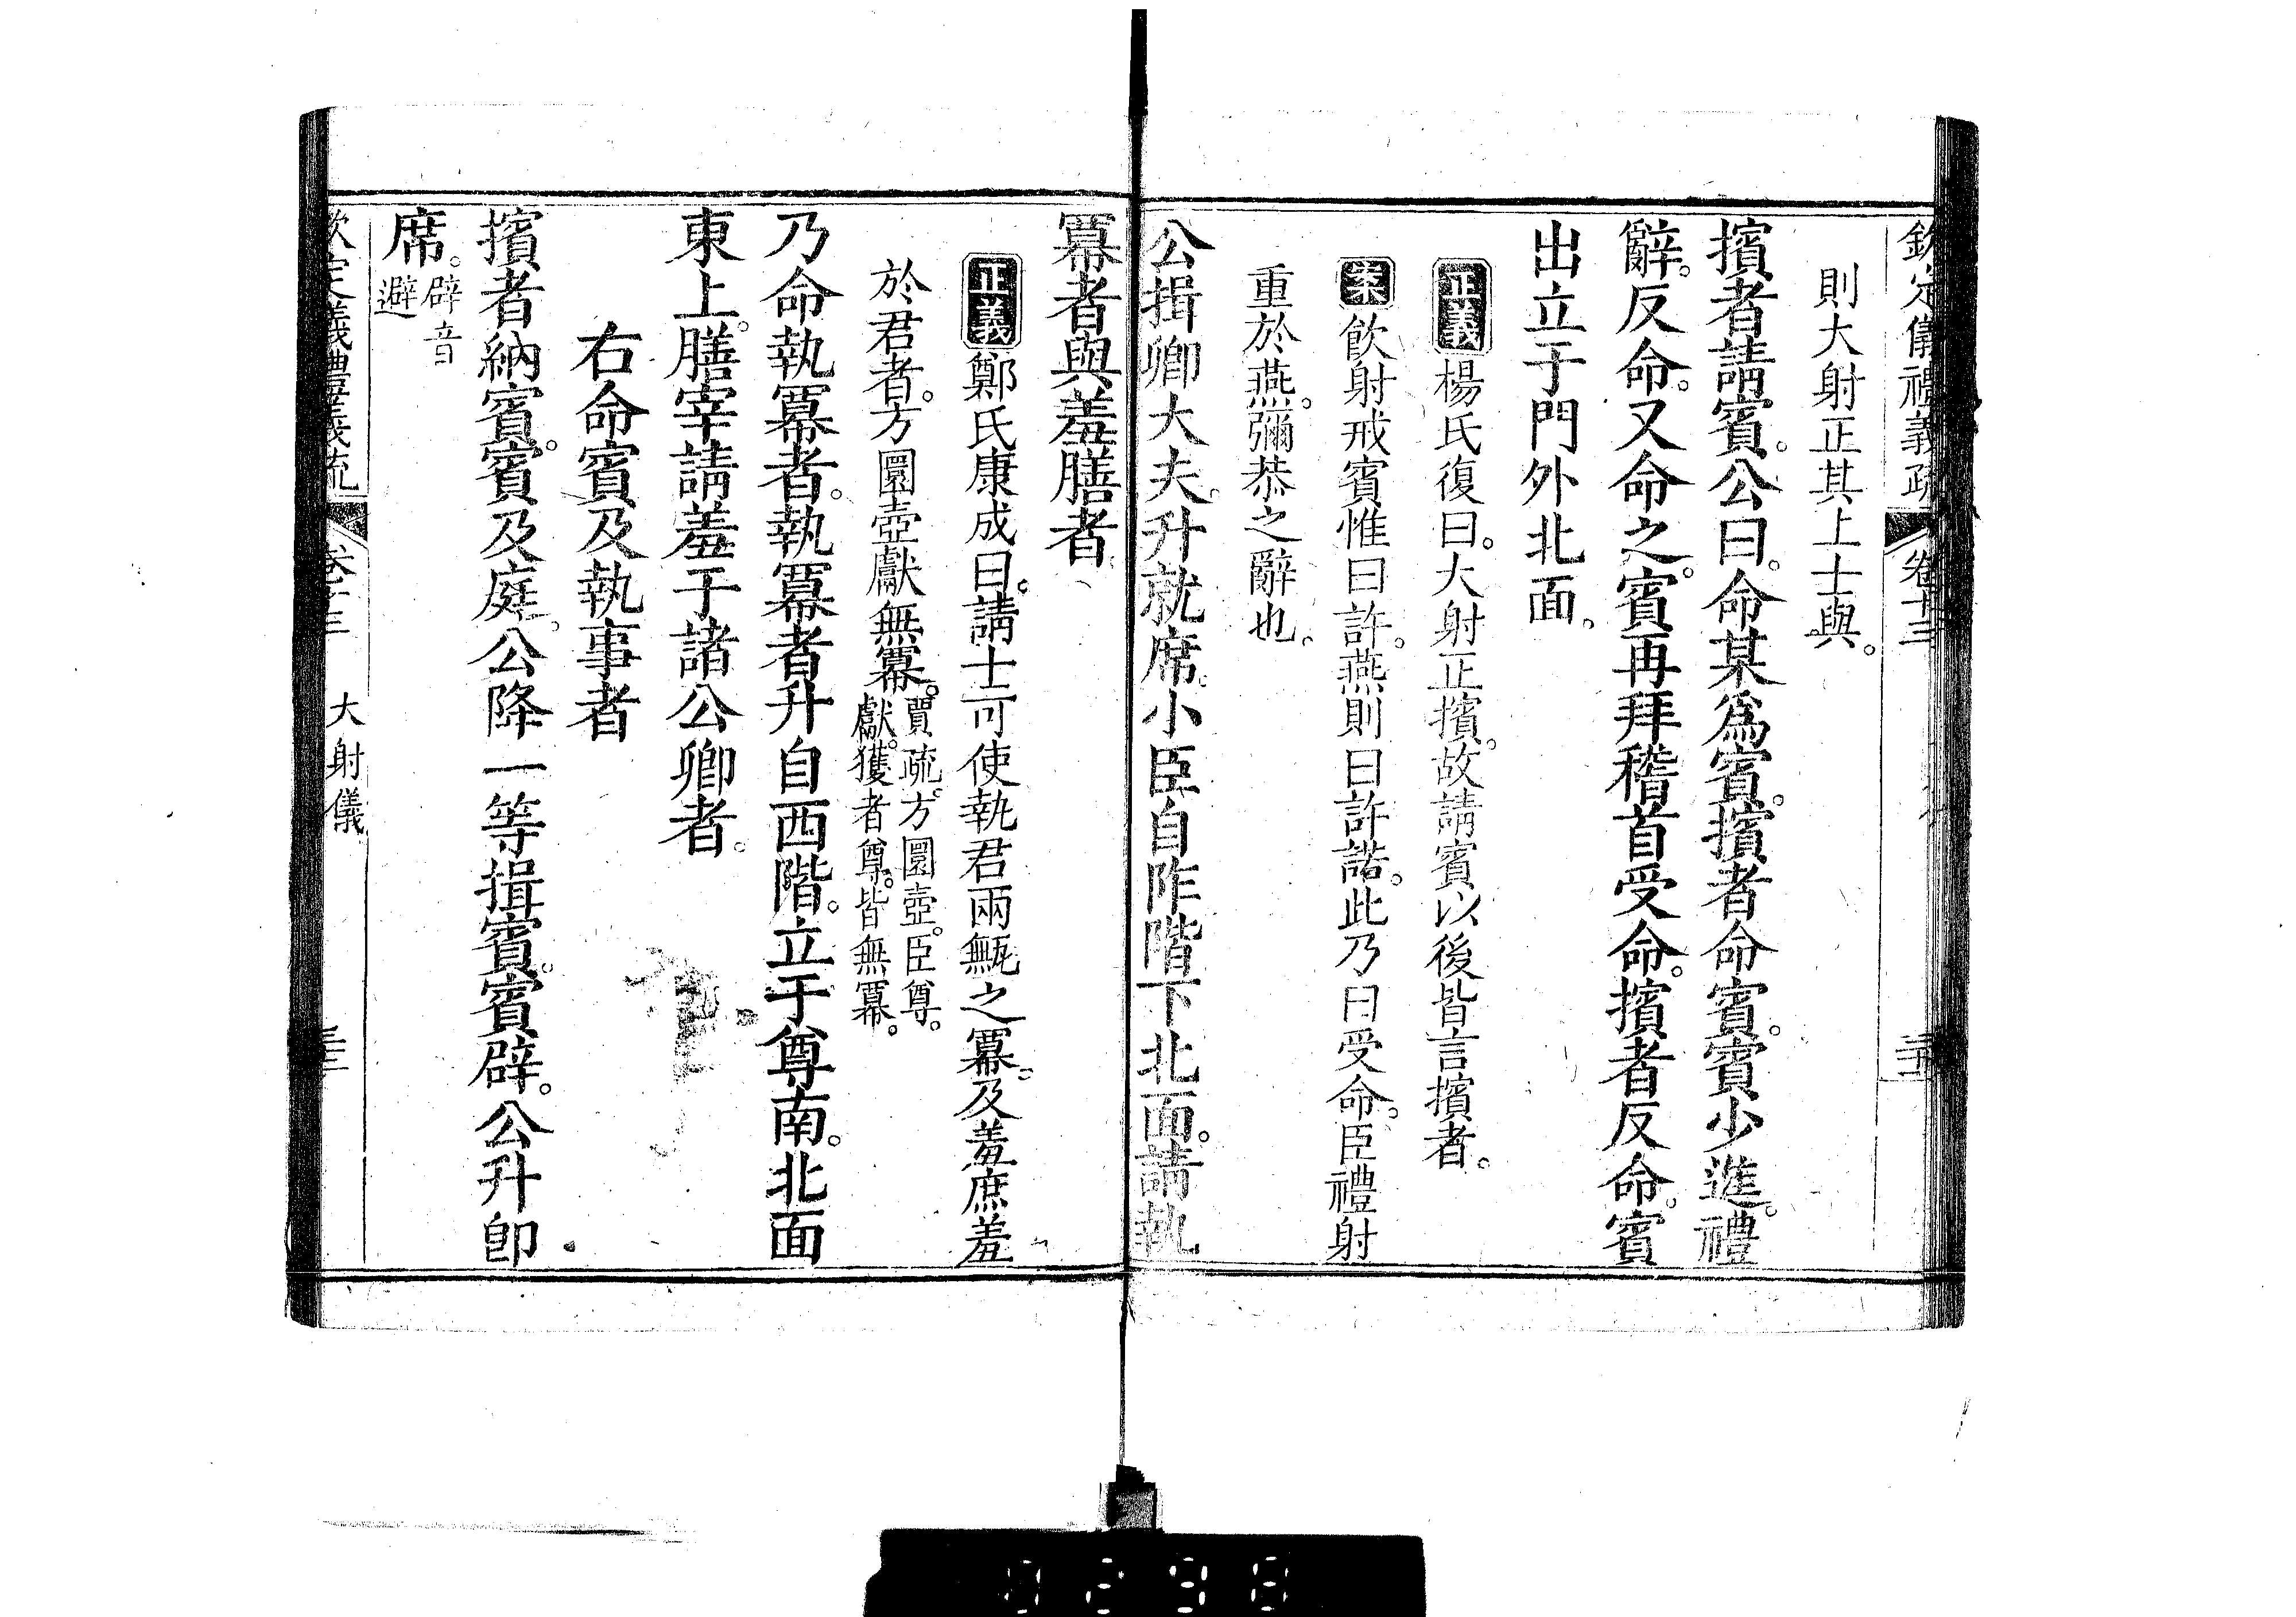 欽定儀禮義疏 卷十三
則大射正其上士與。
擯者請賓。公曰。命某爲賓。擯者命賓。賓少進。禮
辭。反命。又命之。賓再拜稽首受命。擯者反命。賓
出立于門外北面。
正義楊氏復曰。大射正擯。故請賓以後皆言擯者。
案飲射戒賓惟曰許。燕則曰許諾。此乃曰受命。臣禮射
重於燕。彌恭之辭也。
公揖卿大夫。升就席。小臣自阼階下北面。請執
冪者與羞膳者。
正義鄭氏康成曰。請士可使執君兩甒之冪。及羞庶羞
於君者。方圜壺獻無冪。賈疏。方圜壺。臣尊。
獻。獲者尊。皆無冪。
乃命執冪者。執冪者升自西階。立于尊南。北面
東上。膳宰請羞于諸公卿者。
右命賓及執事者
擯者納賓。賓及庭。公降一等揖賓。賓辟。公升卽
席。辟音
避
欽定儀禮義疏 卷十三 大射儀